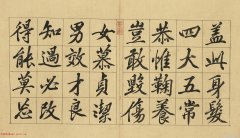 盖此身髮
四大五常
恭惟鞠養
豈敢毀傷
女慕貞潔
男效才良
知過必改
得能莫忘